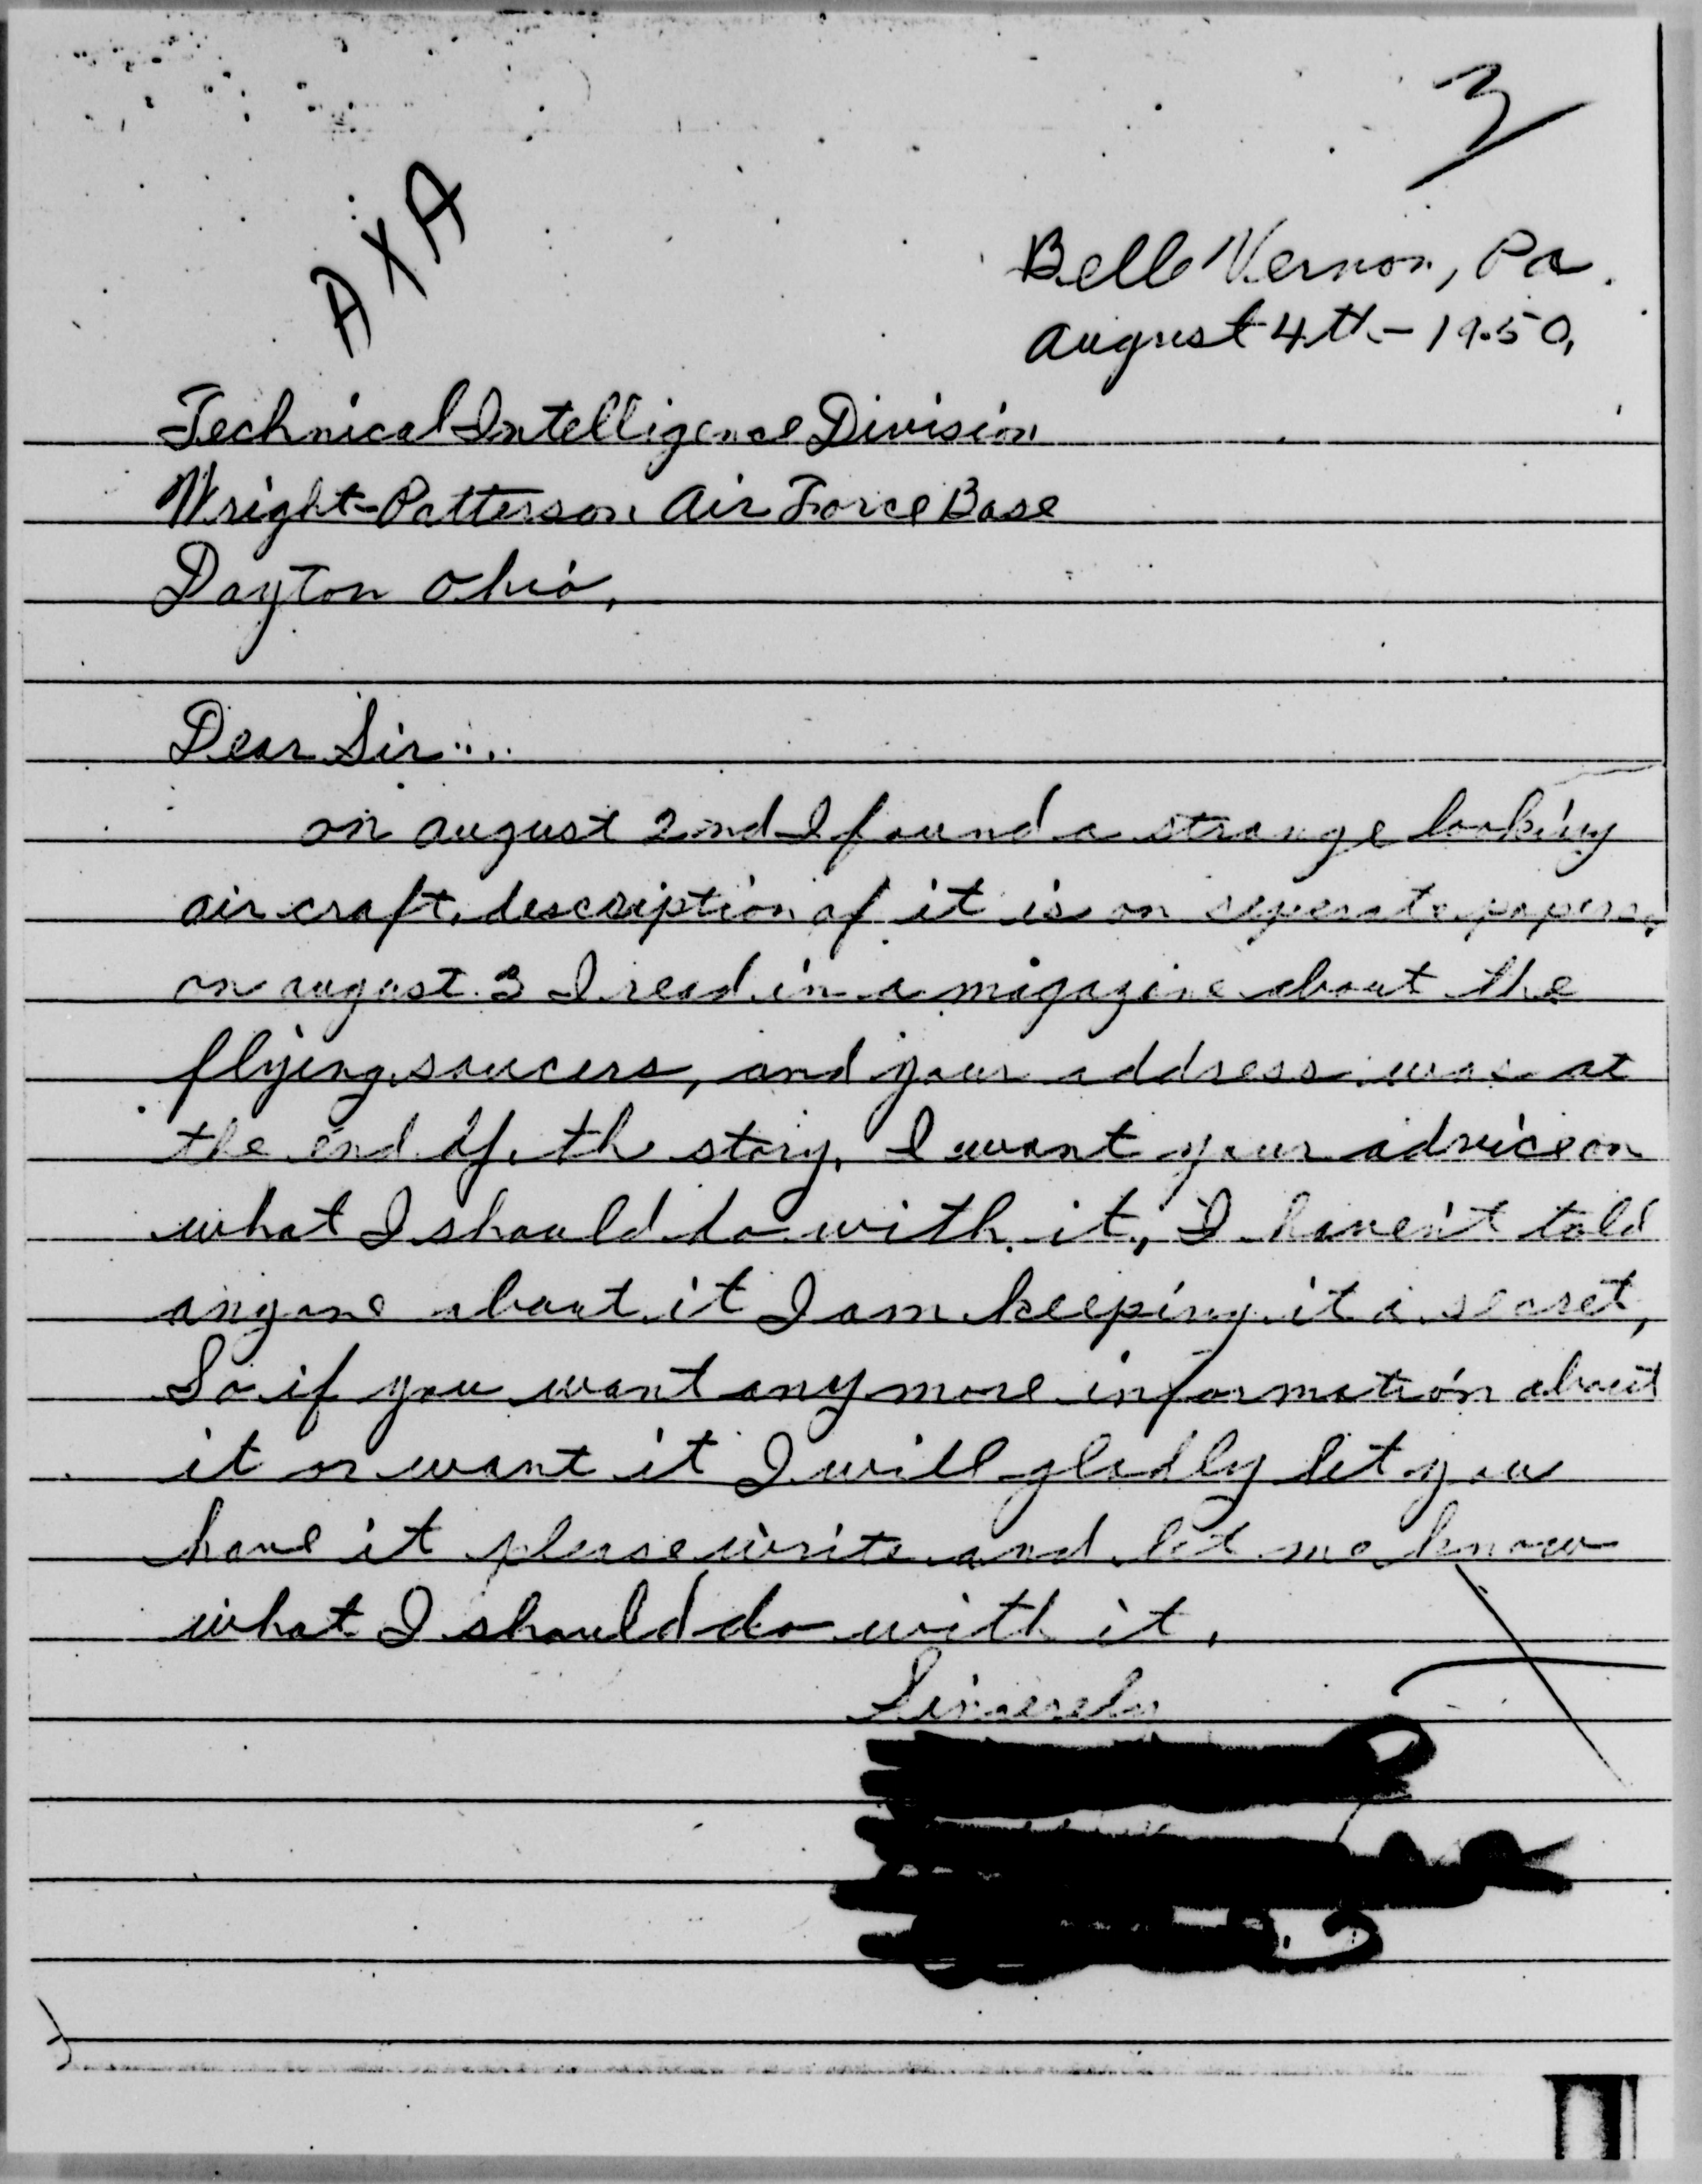 3
AXA
Belle Vernon, Pa.
August 4th - 1950,
Technical Intelligence Division
Wright-Patterson Air Force Base
Dayton Ohio,
Dear Sir....
on august 2nd I found a strange looking
air craft, description of it is on seperate papers,
on august 3 I read in a magazine about the
flying saucers, and your address was at
the end of th story, I want your advice on
what I should do with it, I haven't told
anyone about it I am keeping it a secret,
So if you want any more information about
it or want it I will gladly let you
have it please write and let me know
what I should do with it,
Sincerely